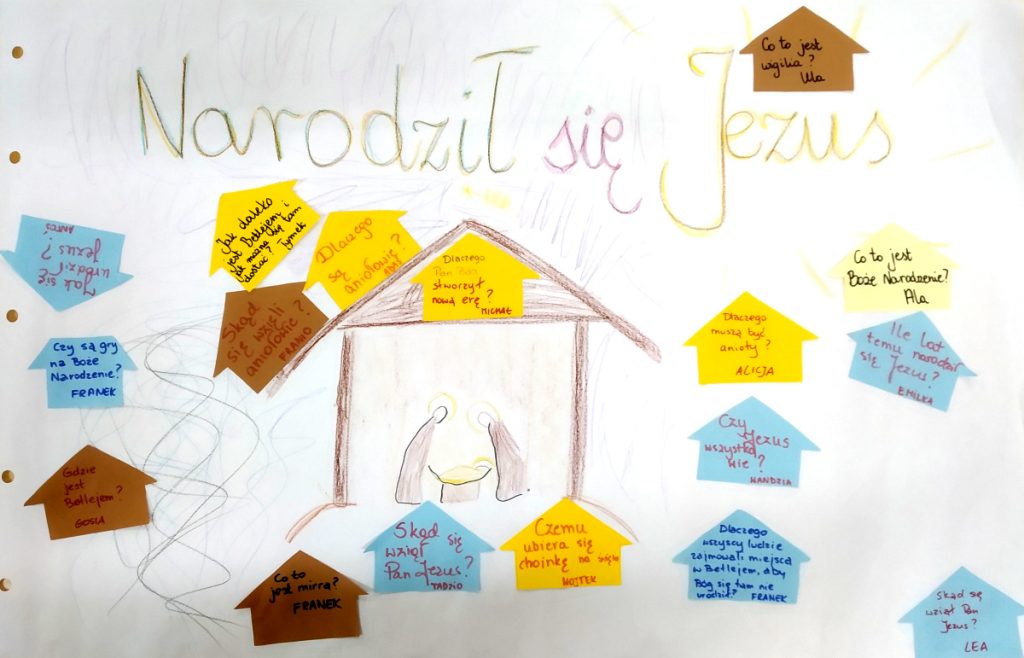 Narodził się Jezus
Co to jest
wigilia?
Ula
Jak daleko
jest Betlejem i
jak można się tam
dostać? Tymek
Dlaczego
są
aniołowie?
Jak się
urodził
Jezus?
ANTOŚ
Skąd
się wzięli
aniołowie?
FRANIO
Dlaczego
Pan Bóg
stworzył
nową erę?
MICHAŁ
Co to jest
Boże Narodzenie?
Ala
Dlaczego
muszą być
anioły?
ALICJA
Ile lat
temu narodził
się Jezus?
EMILKA
Czy są gry
na Boże
Narodzenie?
FRANEK
Czy
Jezus
wszystko
wie?
WANDZIA
Gdzie
jest
Betlejem?
GOSIA
Skąd się
wziął
Pan Jezus?
TADZIO
Czemu
ubiera się
choinkę na święta
WOJTEK
Dlaczego
wszyscy ludzie
zajmowali miejsca
w Betlejem, aby
Bóg się tam nie
urodził? FRANEK
Co to
jest mirra?
FRANEK
Skąd się
wziął Pan
Jezus?
LEA